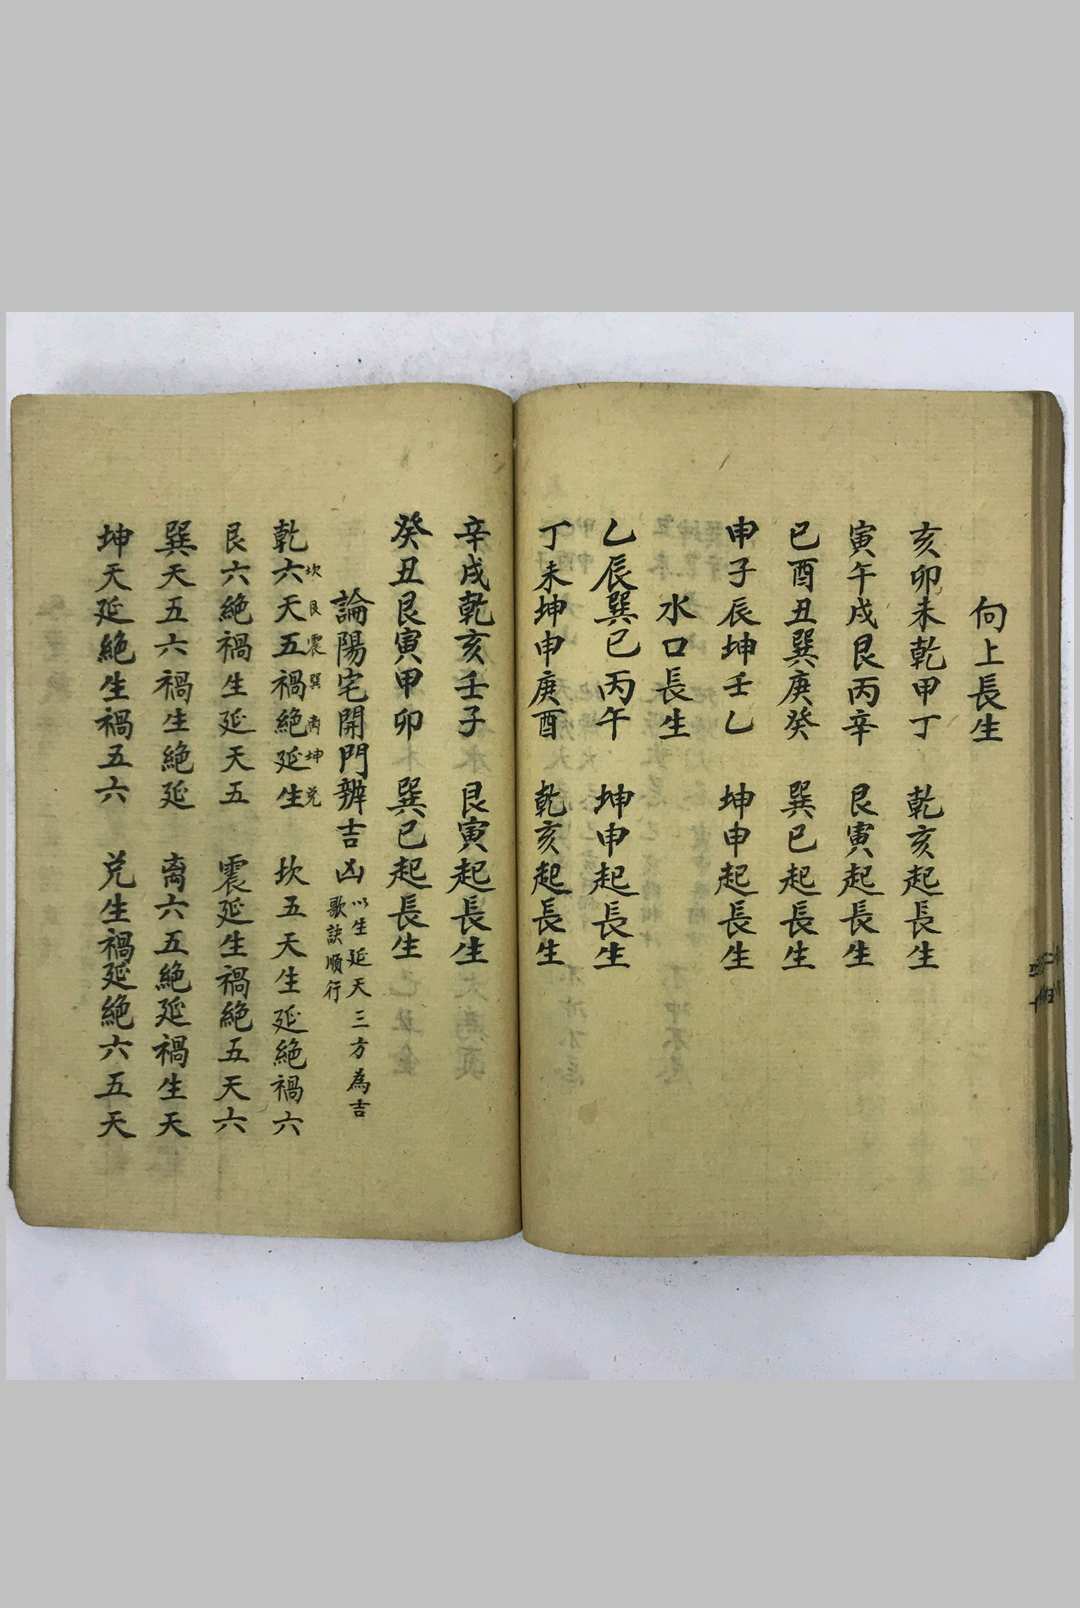 向上長生
亥卯未乾甲丁　乾亥起長生
寅午戌艮丙辛　艮寅起長生
巳酉丑巽庚癸　巽巳起長生
申子辰坤壬乙　坤申起長生
水口長生
乙辰巽巳丙午　坤申起長生
丁未坤申庚酉　乾亥起長生
辛戌乾亥壬子　艮寅起長生
癸丑艮寅甲卯　巽巳起長生
論陽宅開門辨吉凶
以生延天三方為吉
歌訣順行
坎艮震巽离坤兌
乾六天五禍絕延生　坎五天生延絕禍六
艮六絕禍生延天五　震延生禍絕五天六
巽天五六禍生絕延　离六五絕延禍生天
坤天延絕生禍五六　兌生禍延絕六五天